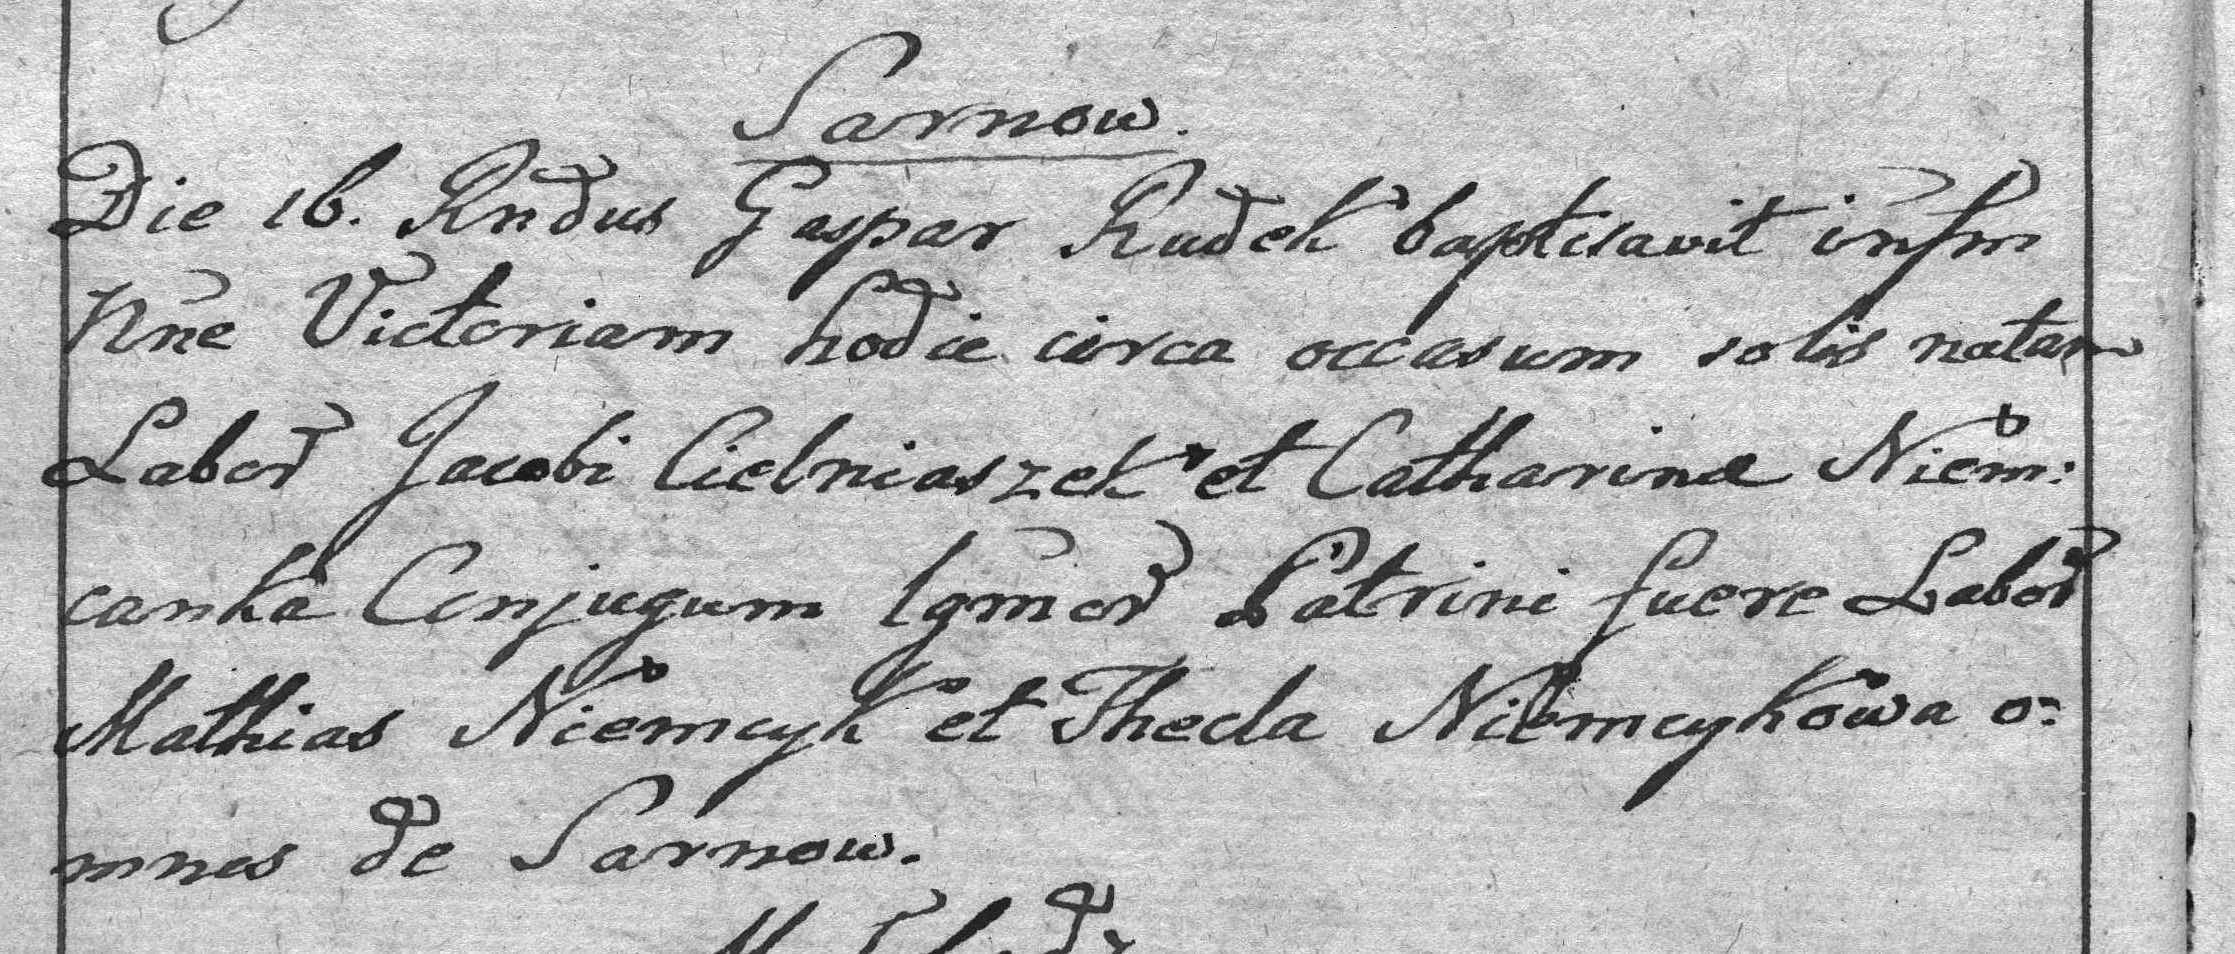 Sarnow.
Die 16. Rndus Gaspar Rudek baptisavit infm
Nne Victoriam hodie circa occasum solis natam
Labor Jacobi Cielniaszek et Catharinæ Niem:
canka Conjugum lgmor Patrini fuere Labor
Mathias Niemcyk et Thecla Niemcykowa o:
mnes de Sarnow.